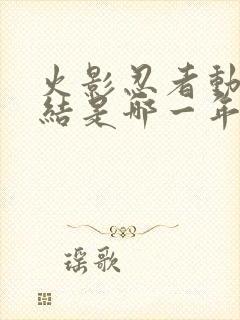 火影忍者動
結是哪一年
瑶歌